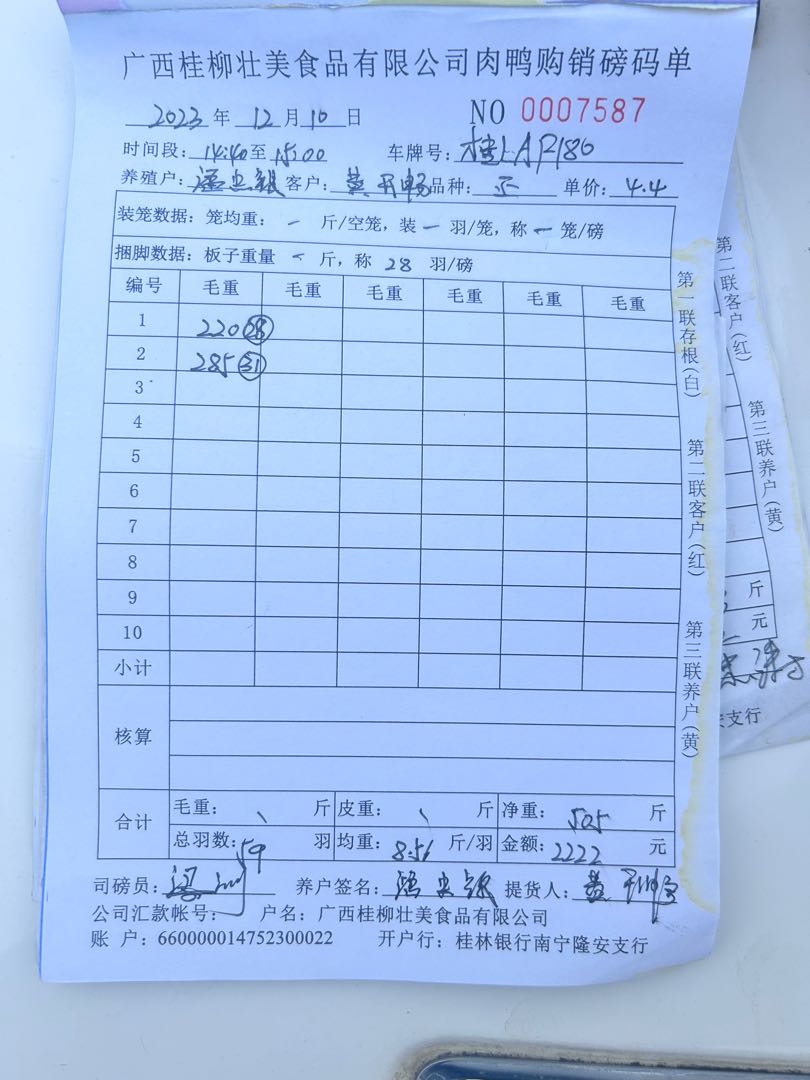 广西桂柳壮美食品有限公司肉鸭购销磅码单
2023 年 12 月 10 日 NO 0007587
时间段: 14:40 至 15:00 车牌号: 桂LAP186
养殖户: 客户: 黄 品种: 单价: 4.4
装笼数据: 笼均重: - 斤/空笼, 装 - 羽/笼, 称 - 笼/磅
捆脚数据: 板子重量 - 斤, 称 28 羽/磅
编号 毛重 毛重 毛重 毛重 毛重 毛重
1 220 28
2 285 31
3
4
5
6
7
8
9
10
小计
核算
合计 毛重: 、 斤 皮重: 、 斤 净重: 505 斤
总羽数: 59 羽 均重: 8.56 斤/羽 金额: 2222 元
司磅员: 养户签名: 提货人: 黄
公司汇款帐号: 户名: 广西桂柳壮美食品有限公司
账 户: 660000014752300022 开户行: 桂林银行南宁隆安支行
第一联存根(白) 第二联客户(红) 第三联养户(黄)
第二联客户(红) 第三联养户(黄)
斤
元
支行